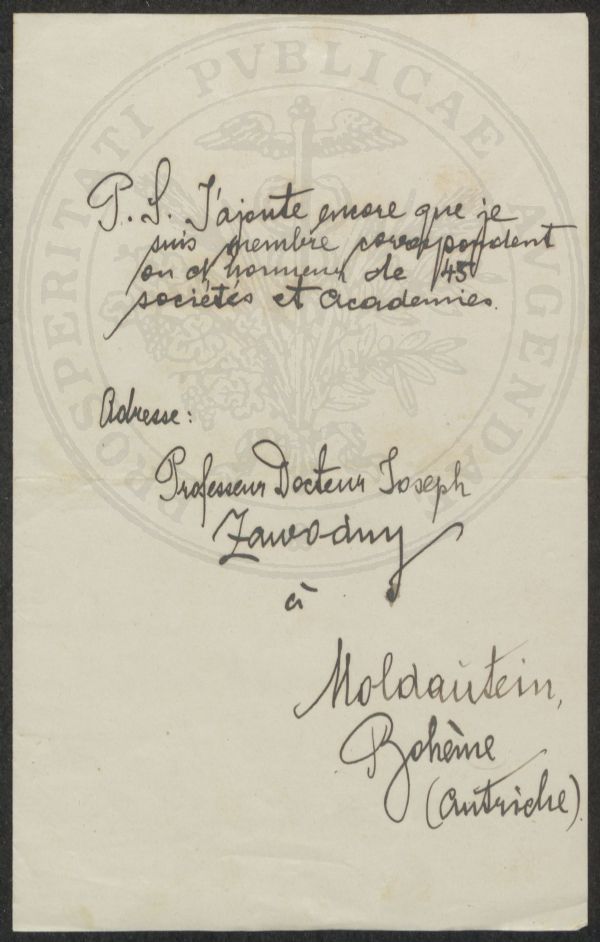 PROSPERITATI PVBLICAE AVGENDAE
P. S. J'ajoute encore que je
suis membre correspondent
ou d'honneur de 45
sociétés et académies.
Adresse:
Professeur Docteur Joseph
Zawodny
à
Moldautein,
Bohème
(Autriche).